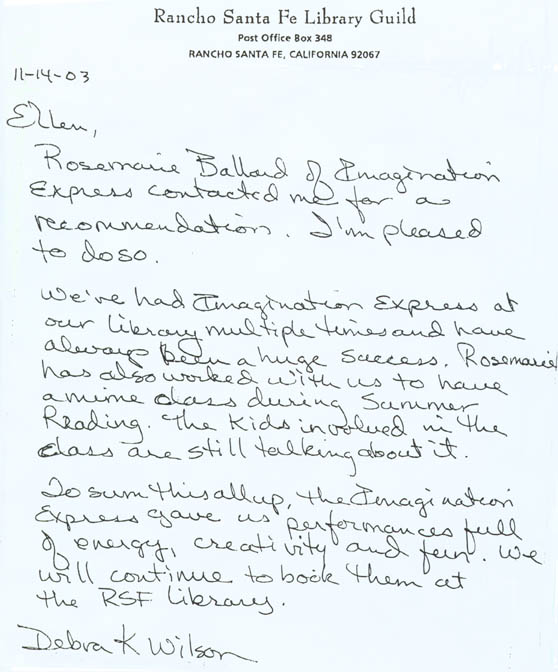 Rancho Santa Fe Library Guild
Post Office Box 348
RANCHO SANTA FE, CALIFORNIA 92067
11-14-03
Ellen,
Rosemarie Ballard of Imagination
Express contacted me for a
recommendation. I'm pleased
to do so.
We've had Imagination Express at
our library multiple times and have
always been a huge success. Rosemarie
has also worked with us to have
a mime class during Summer
Reading. The kids involved in the
class are still talking about it.
To sum this all up, the Imagination
Express gave us performances full
of energy, creativity and fun. We
will continue to book them at
the RSF Library.
Debra K Wilson